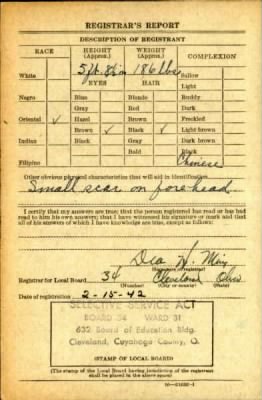 REGISTRAR'S REPORT
DESCRIPTION OF REGISTRANT
RACE HEIGHT (Approx.) WEIGHT (Approx.) COMPLEXION
White 5 ft. 8½ in 186 lbs Sallow
EYES HAIR Light
Negro Blue Blonde Ruddy
Gray Red Dark
Oriental ✓ Hazel Brown Freckled
Brown ✓ Black ✓ Light brown
Indian Black Gray Dark brown
Bald Black
Filipino Chinese
Other obvious physical characteristics that will aid in identification
Small scar on forehead
I certify that my answers are true; that the person registered has read or has had
read to him his own answers; that I have witnessed his signature or mark and that
all of his answers of which I have knowledge are true, except as follows:
H.
(Signature of registrar)
Registrar for Local Board 34 Cleveland Ohio
(Number) (City or county) (State)
Date of registration 2-15-42
SELECTIVE SERVICE ACT
BOARD 34 WARD 31
632 Board of Education Bldg.
Cleveland, Cuyahoga County, O.
(STAMP OF LOCAL BOARD)
(The stamp of the Local Board having jurisdiction of the registrant
shall be placed in the above space)